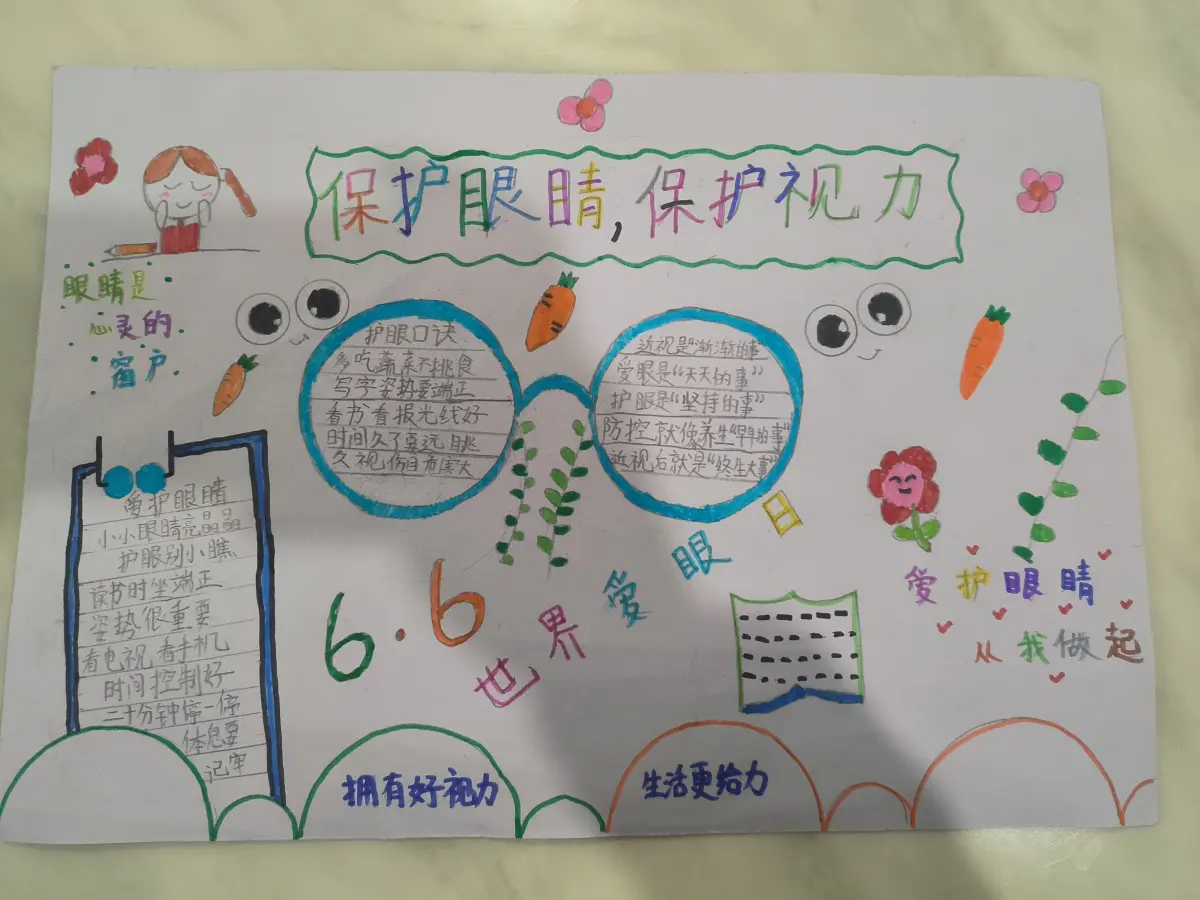 保护眼睛,保护视力
眼睛是
心灵的
窗户
护眼口诀
多吃蔬菜不挑食
写字姿势要端正
看书看报光线好
时间久了要远眺
久视伤目有害大
近视是“渐渐的事”
爱眼是“天天的事”
护眼是“坚持的事”
防控就像养生“早早的事”
近视后就是“终生大事”
爱护眼睛
小小眼睛亮晶晶
护眼别小瞧
读书时坐端正
姿势很重要
看电视看手机
时间控制好
二十分钟停一停
休息要
记牢
6.6
世界爱眼日
爱护眼睛
从我做起
拥有好视力
生活更给力